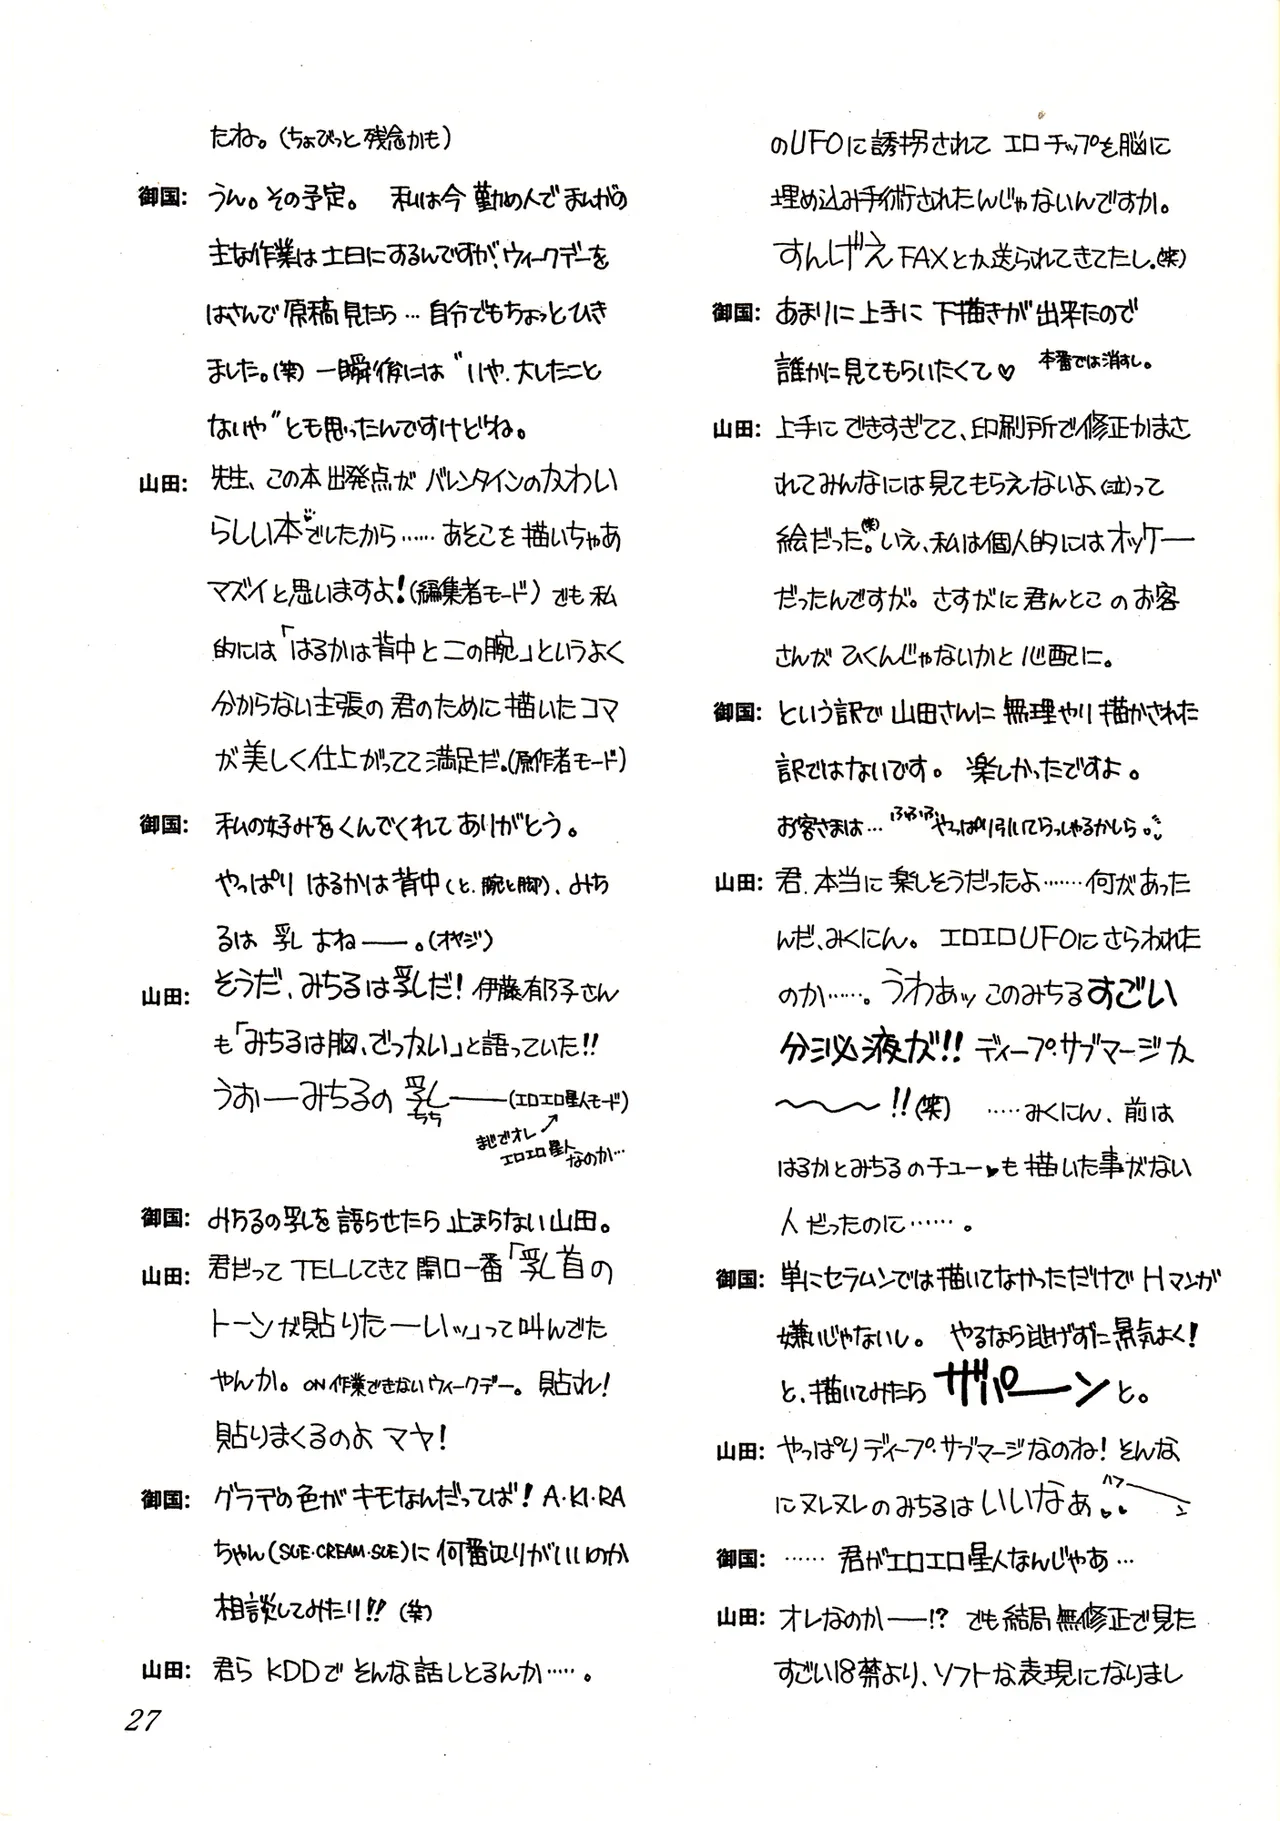 のUFOに誘拐されて エロチップを脳に
埋め込み手術されたんじゃないんですか。
すんげえFAXとか送られてきてたし。(笑)
御国: あまりに上手に下描きが出来たので
誰かに見てもらいたくて♡ 本番では消すし。
山田: 上手にできすぎてて、印刷所で修正かまさ
れてみんなには見てもらえないよ、(泣)って
絵だった。(笑)いえ、私は個人的にはオッケー
だったんですが。さすがに君んとこのお客
さんがひくんじゃないかと心配に。
御国: という訳で山田さんに無理やり描かされた
訳ではないです。 楽しかったですよ。
お客さまは… ふふふ やっぱり引いてらっしゃるかしら。
山田: 君、本当に楽しそうだったよ……何があった
んだ、みくにん。 エロエロUFOにさらわれた
のか……。うわぁッこのみちるすごい
分泌液が!! ディープ・サブマージか
〜〜〜!!(笑) ……みくにん、前は
はるかとみちるのチュー♥も描いた事がない
人だったのに……。
御国: 単にセラムンでは描いてなかっただけでHマンガ
嫌いじゃないし。 やるなら逃げずに景気よく!
と、描いてみたら ザパーン と。
山田: やっぱりディープ・サブマージなのね! そんな
にヌレヌレのみちるはいいなぁ ハアーン
御国: …… 君がエロエロ星人なんじゃあ…
山田: オレなのかー!? でも結局無修正で見た
すごい18禁より、ソフトな表現になりまし
たね。(ちょびっと残念かも)
御国: うん。その予定。 私は今勤め人でまんがの
主な作業は土日にするんですが、ウィークデーを
はさんで原稿見たら…自分でもちょっとひき
ました。(笑) 一瞬後には"いや、大したこと
ないや"とも思ったんですけどね。
山田: 先生、この本出発点がバレンタインのかわい
らしい本でしたから……あそこを描いちゃあ
マズイと思いますよ!(編集者モード) でも私
的には「はるかは背中と二の腕」というよく
分からない主張の君のために描いたコマ
が美しく仕上がってて満足だ。(原作者モード)
御国: 私の好みをくんでくれてありがとう。
やっぱりはるかは背中(と、腕と脚)、みち
るは 乳 よねー。(オヤジ)
山田: そうだ、みちるは乳だ! 伊藤有郁子さん
も「みちるは胸、でっかい」と語っていた!!
うおーみちるの乳ー(エロエロ星人モード)
ちち
まじでオレ
エロエロ星人
なのか…
御国: みちるの乳を語らせたら止まらない山田。
山田: 君だってTELしてきて開口一番「乳首の
トーンが貼りたーいッ」って叫んでた
やんか。ON作業できないウィークデー。貼れ!
貼りまくるのよマヤ!
御国: グラデの色がキモなんだってば! A・KI・RA
ちゃん(SUE・CREAM・SUE)に何番辺りがいいのか
相談してみたり!! (笑)
山田: 君らKDDでそんな話しとるんか……。
27